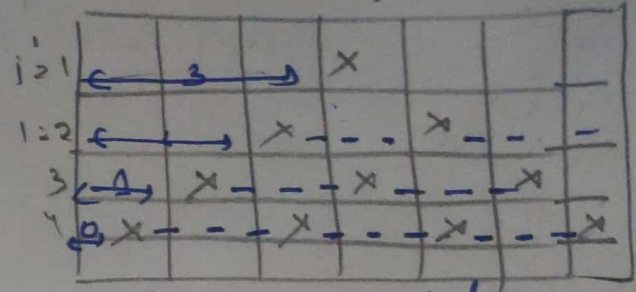 i=1 3 X
i=2 X - - - X - - -
3 1 X - - - X - - - X
4 0 X - - - X - - - X - - - X